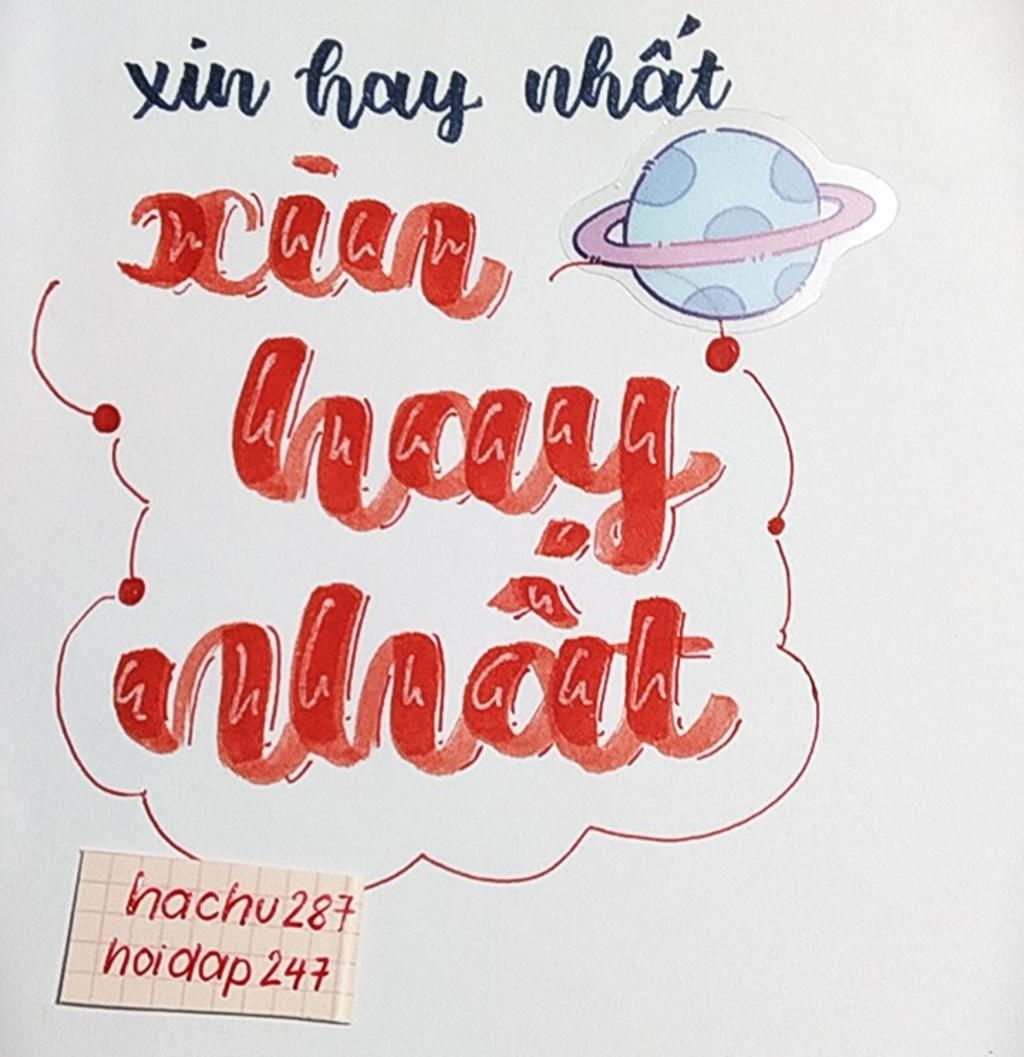 xin hay nhất
xin
hay
nhất
hachu287
hoidap247